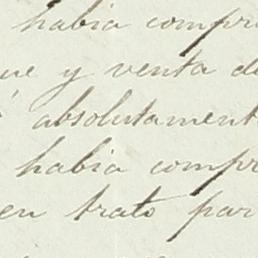 habia compr
ue y venta d
absolutament
habia compr
en trato par